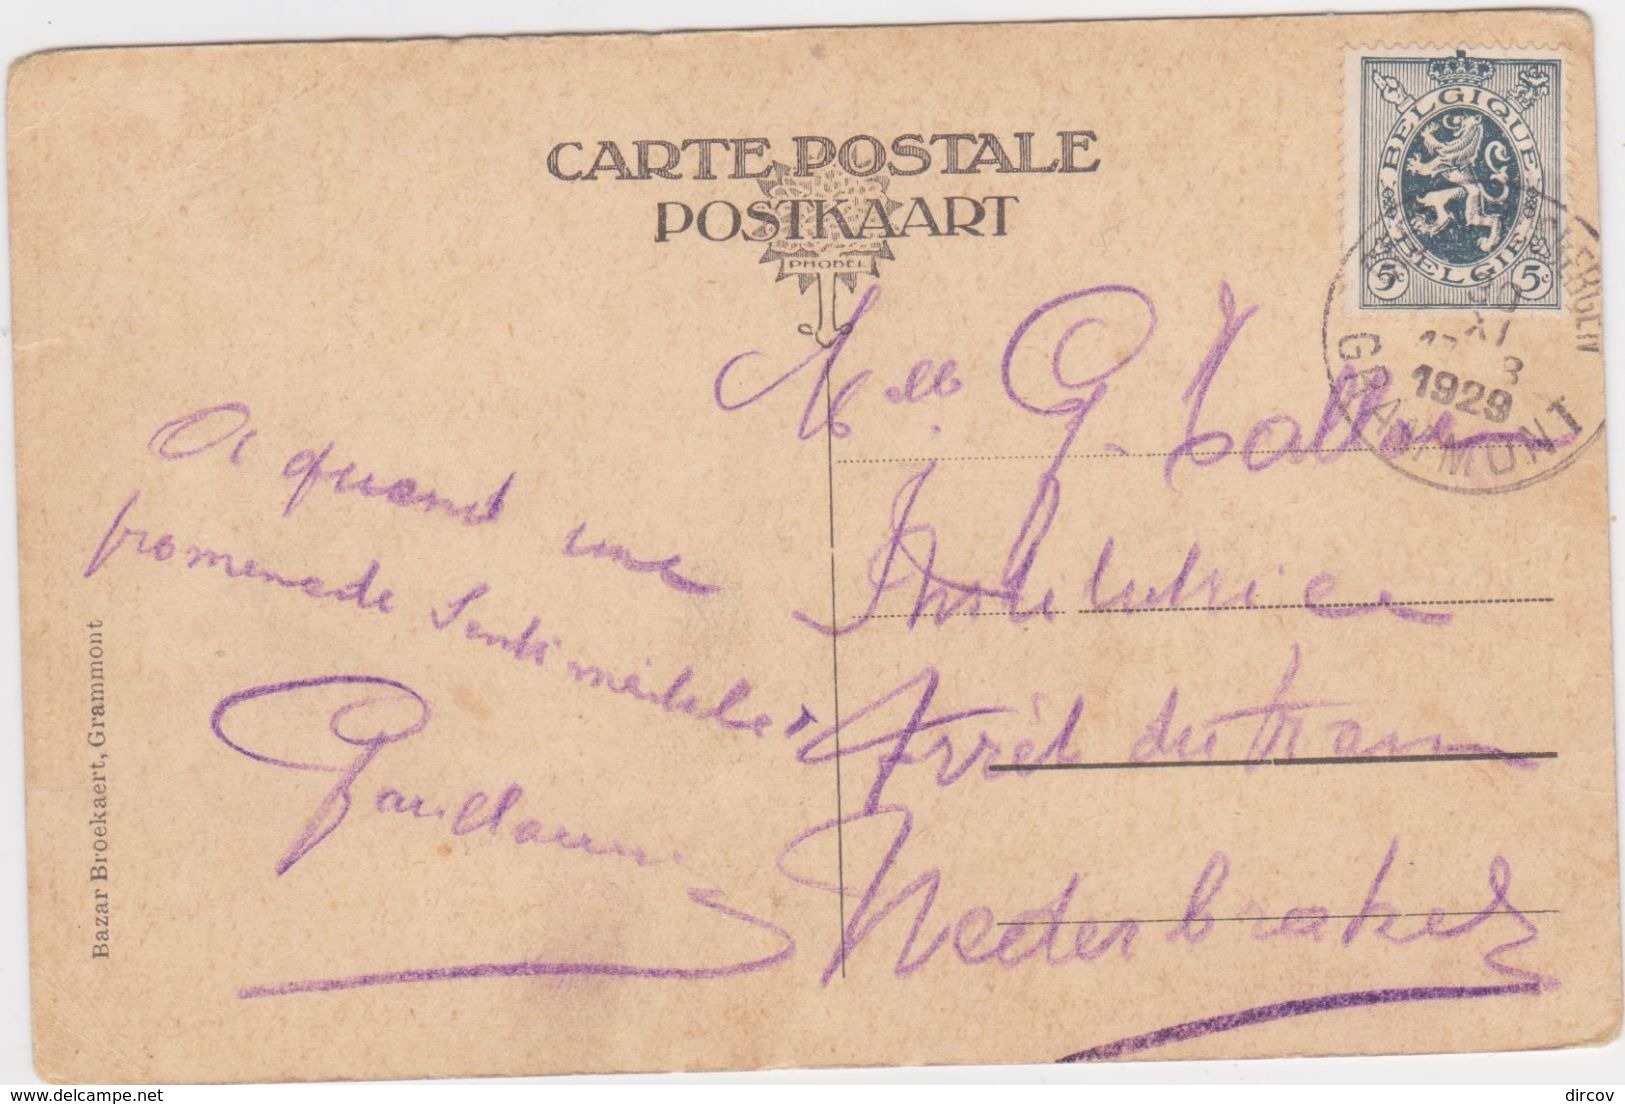 CARTE POSTALE
POSTKAART
PHOBEL
BELGIQUE
BELGIE
5c 5c
XI
1929
GRAMMONT
A quand une
promenade Sentimentale?
Guillaume
Melle G.
Institutrice
Arrêt du tram
Nederbrakel
Bazar Broekaert, Grammont
delcampe.net
dircov